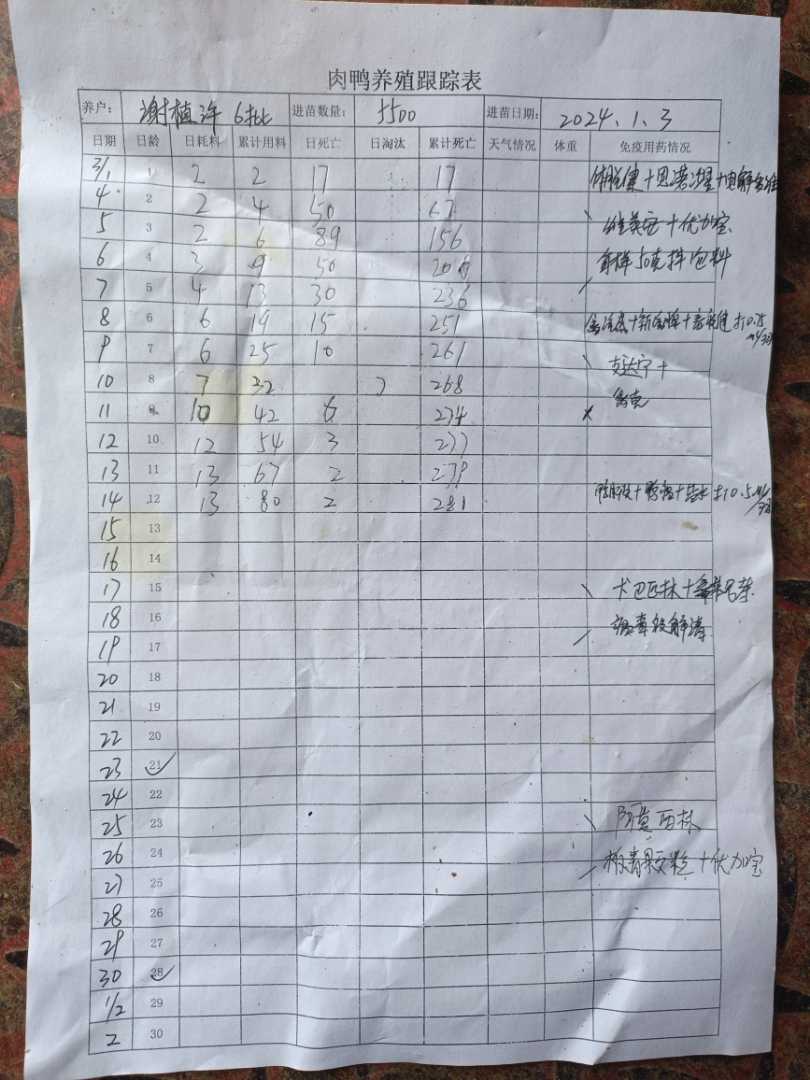 肉鸭养殖跟踪表
养户： 谢植洋 6批 进苗数量： 5500 进苗日期： 2024.1.3
日期 日龄 日耗料 累计用料 日死亡 日淘汰 累计死亡 天气情况 体重 免疫用药情况
3/1 1 2 2 17 17
4 2 2 4 50 67
5 3 2 6 89 156 优加宝
6 4 3 9 50 206 50克拌1包料
7 5 4 13 30 236
8 6 6 19 15 251 打0.75
9 7 6 25 10 261
10 8 7 32 7 268
11 9 10 42 6 274
12 10 12 54 3 277
13 11 13 67 2 279
14 12 13 80 2 281 打0.5ml/羽
15 13
16 14
17 15 卡巴匹林+
18 16
19 17
20 18
21 19
22 20
23 21 ✓
24 22
25 23 阿莫西林
26 24 板青颗粒+优加宝
27 25
28 26
29 27
30 28 ✓
1/2 29
2 30